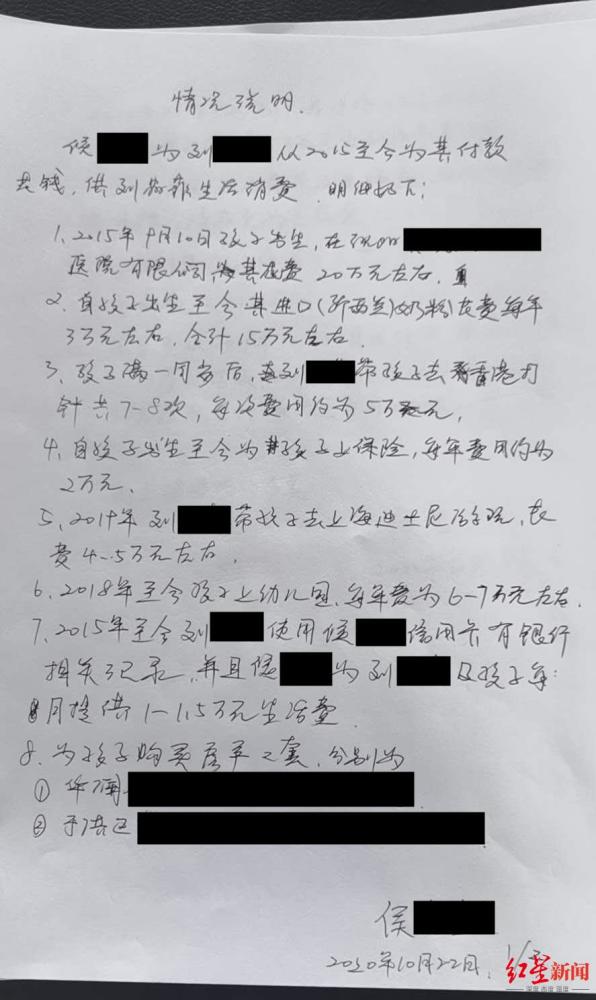 情况说明.
侯 为刘 从2015至今为其付款
花钱,供刘 生活消费.明细如下:
1、2015年9月10日孩子出生,在沈阳
医院有限公司为其花费20万元左右.
2.自孩子出生至今其进口(新西兰)奶粉花费每年
3万元左右,合计15万元左右.
3、孩子满一周岁后,刘 带孩子去香港打
针共7-8次,每次费用约为5万元,
4.自孩子出生至今为孩子上保险,每年费用约为
2万元、
5、2019年刘 带孩子去上海迪士尼 ,花
费4-5万元左右.
6、2018年至今孩子上幼儿园,每年费为6-7万元左右.
7.2015年至今刘 使用侯 信用卡有银行
相关记录,并且侯 为刘 及孩子每
月提供1-1.5万元生活费.
8.为孩子购买房产二套,分别为
① 华润
② 于洪区
侯
2020年10月22日.
红星新闻
深度 态度 温度